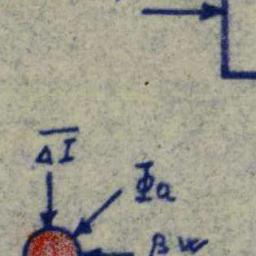 $\overline{\Delta I}$
$\overline{\Phi}a$
βw